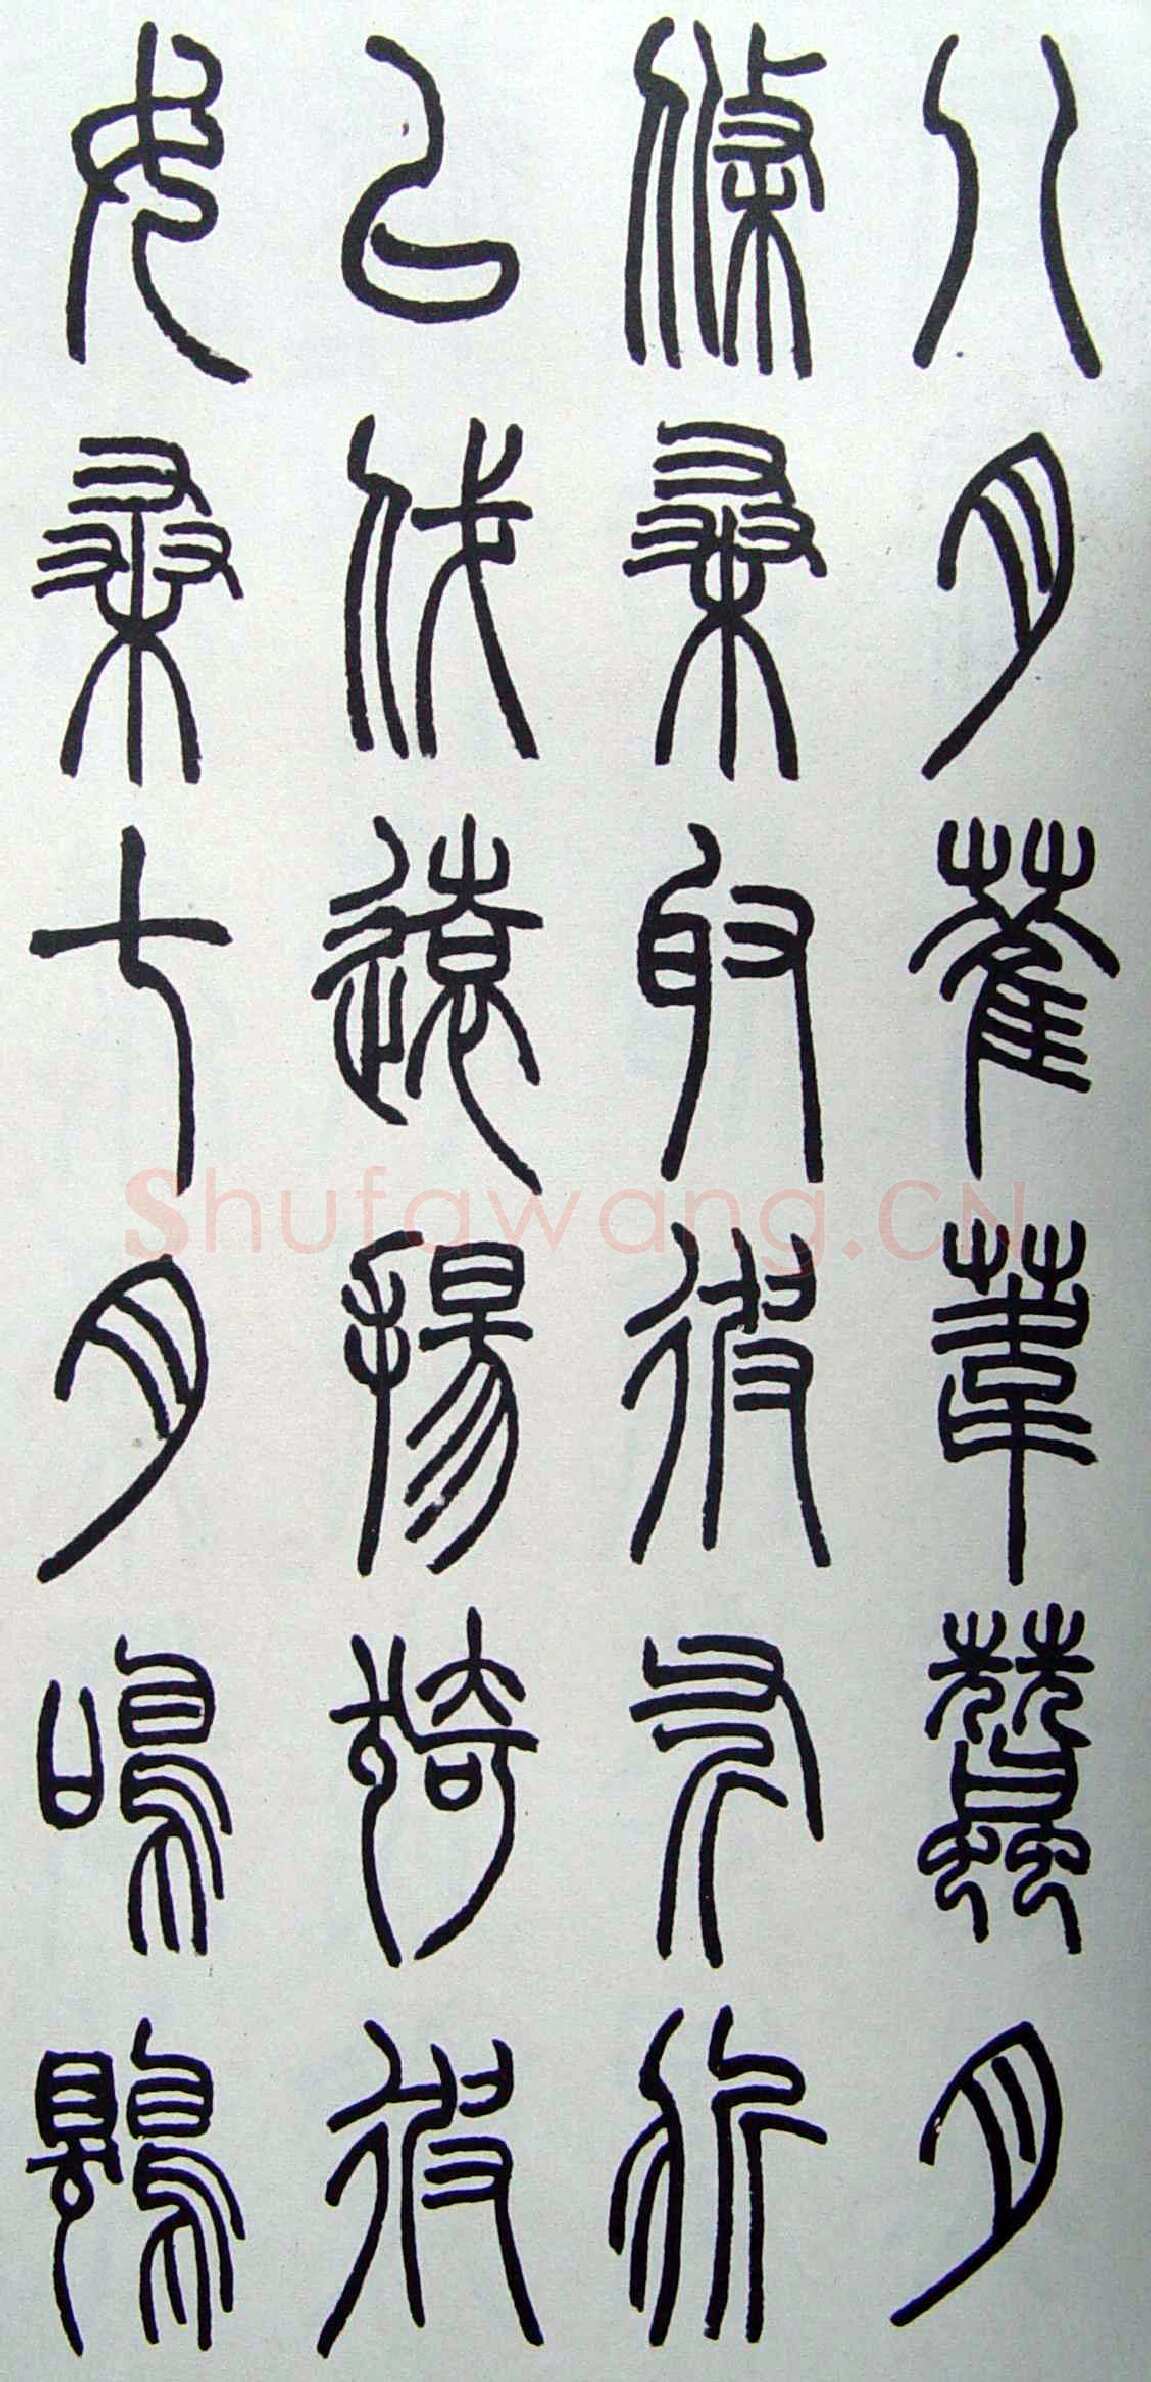 八月萑葦蠶月
條桑取彼斧斨
以伐遠揚猗彼
女桑七月鳴鵙
Shufawang.CN